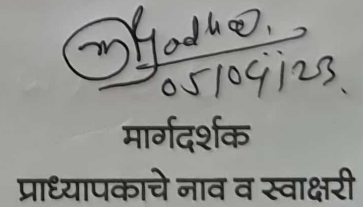 05/04/23.
मार्गदर्शक
प्राध्यापकाचे नाव व स्वाक्षरी